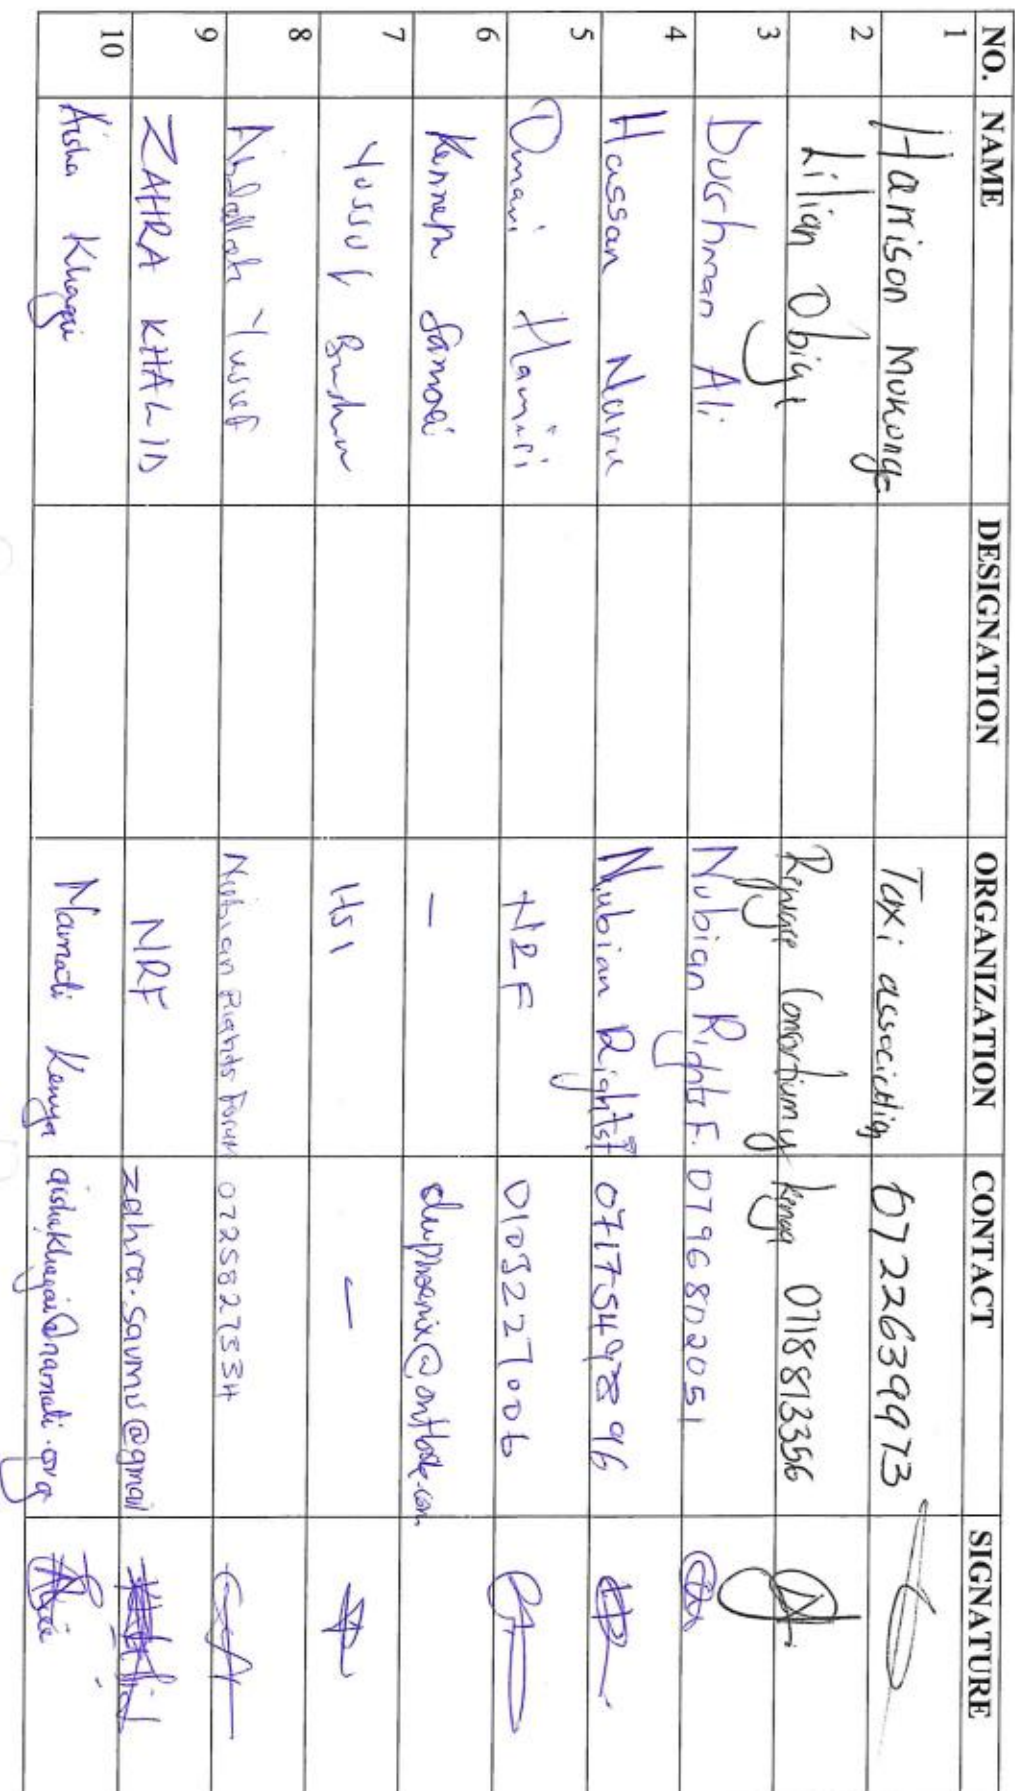 NO. NAME DESIGNATION ORGANIZATION CONTACT SIGNATURE
1 Harrison Mukonga Taxi association 0722639973
2 Lilian Obiye Refugee Consortium of Kenya 0718813356
3 Durhman Ali Nubian Rights F. 0796802051
4 Hassan Nuru Nubian Rights f 0717548896
5 Omari Hamisi NRF 0103227006
6 Kenneth Samoei -
7 Yussuf Bashir HSI -
8 Abdallah Yusuf Nubian Rights Forum
9 ZAHRA KHALID NRF zahra.saumu@gmail
10 Aisha Khagai Namati Kenya aishakhagai@namati.org